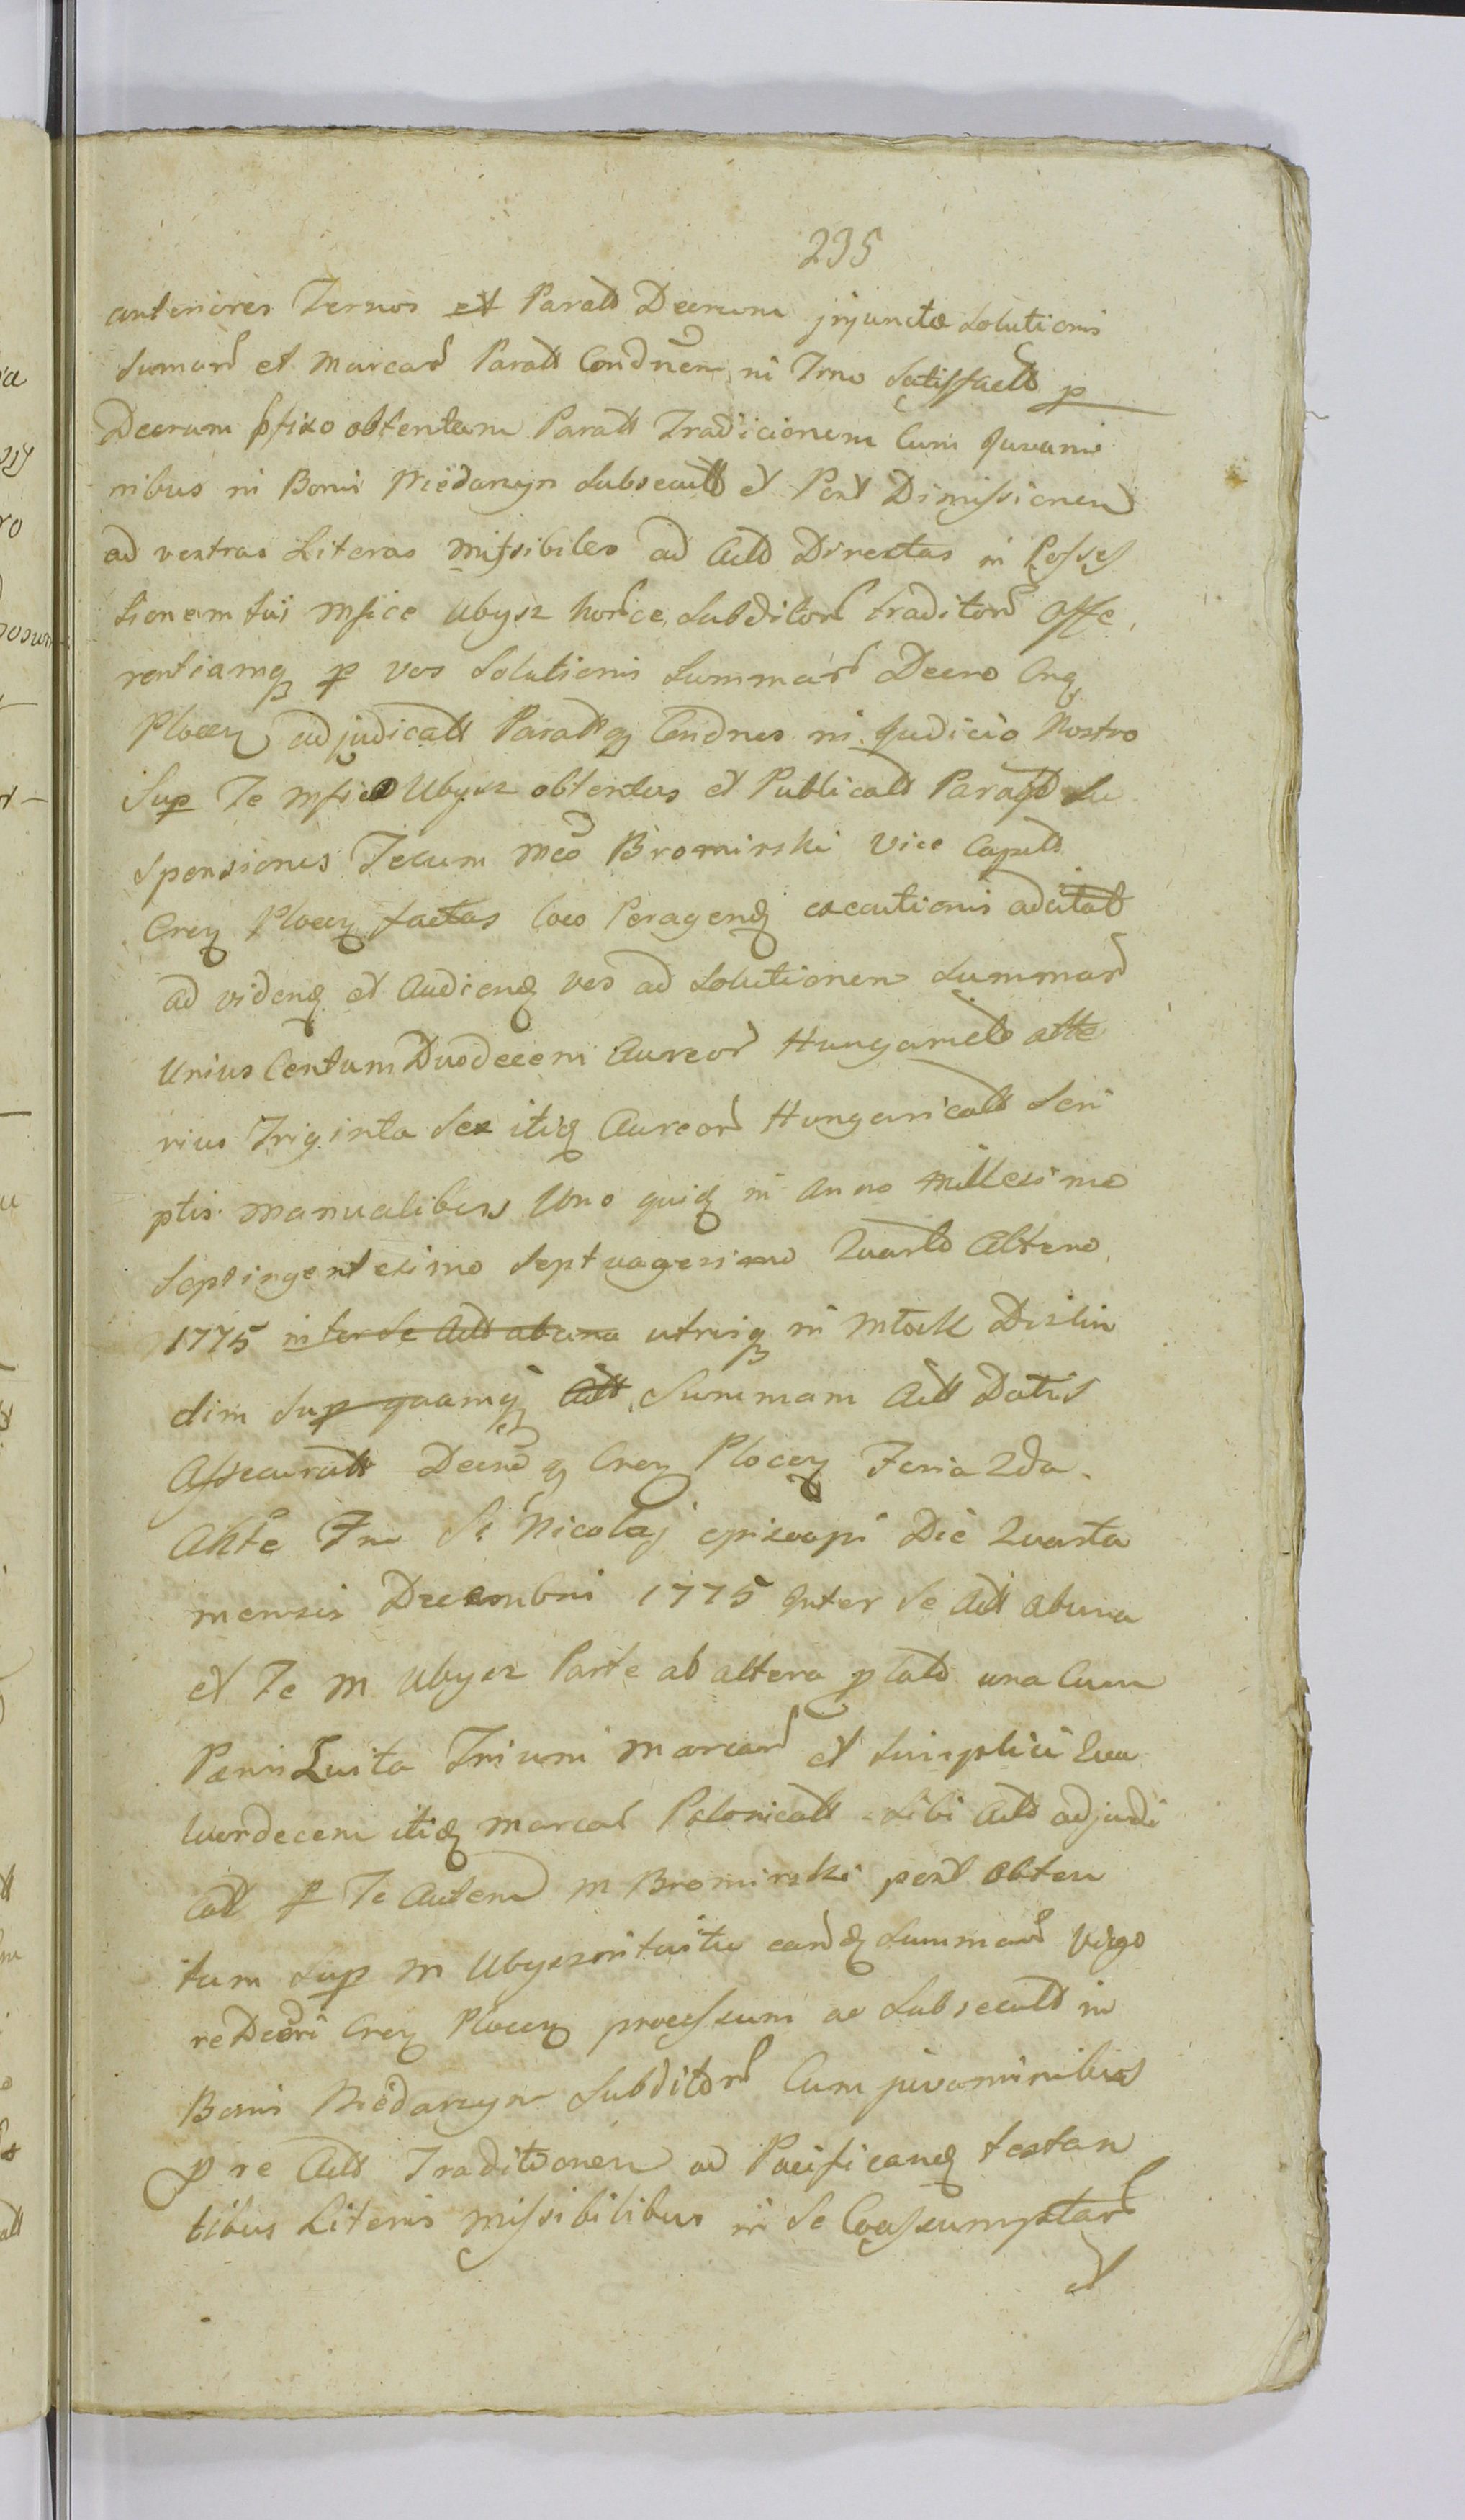 235
anteriores Ternos et Paratt Decrum jnjuncta Solutionis
Sumarũ et Marcarũ Paratt Condnem in Trno Satisfactt p
Decrum pfixo obtentam Paratt Tradicionem Cum Juvami
nibus in Bonis Niedarzyn Subsecutt et Post Dimissionem
ad vestras Literas missibiles ad Actt Directas in Posses
sionem tui Msice Ubysz horce, Subditorũ traditorũ Offe,
rentiamq p vos Solutionis Summarũ Decro Crq
Plocey adjudicatt Parattq Condnes in Judicio Nostro
Sup Te Msice Ubysz obtentas et Publicatt Paratt Su
spensiones Tecum Mco Bromirski Vice Captt
Crey Plocey factas loco Peragend executionis adcitatt
ad vidend et Audiend vos ad Solutionem Summarũ
Unius Centum Duodecem Aureorũ Hungaricatt alte
rius Triginta Sex itid Aureorũ Hungaricatt Scri
ptis manualibus Uno quid in Anno Millesimo
Septingentesimo Septuagesimo Quarto Altero
1775 inter se Actt ab una utrisq in Młock Distin
ctim Sup quamq Actt Summam Actt Datis
Assecuratt Decro q Crey Plocey Feria 2da.
Ante Fm S. Nicolaj episcopi Die Quarta
mensis Decembris 1775 Inter Se Actt ab una
et Te M Ubysz Parte ab altera p latt una Cum
Pænis Luita Trium Marcarũ et Simplici Qua
tuordecem itid Marcarũ Polonicatt Sibi Actt adjudi
catt p Te Autem M Bromirski post Obten
tum Sup M Ubysz intuitu earũd Summarũ Vigo
re Decri Crey Plocey processum ac Subsecutt in
Bonis Niedarzyn Subditorũ Cum juvaminibus
p re Actt Traditionem ad Pacificand testan
tibus Literis missibilibus in Se Coassumptarũ
et